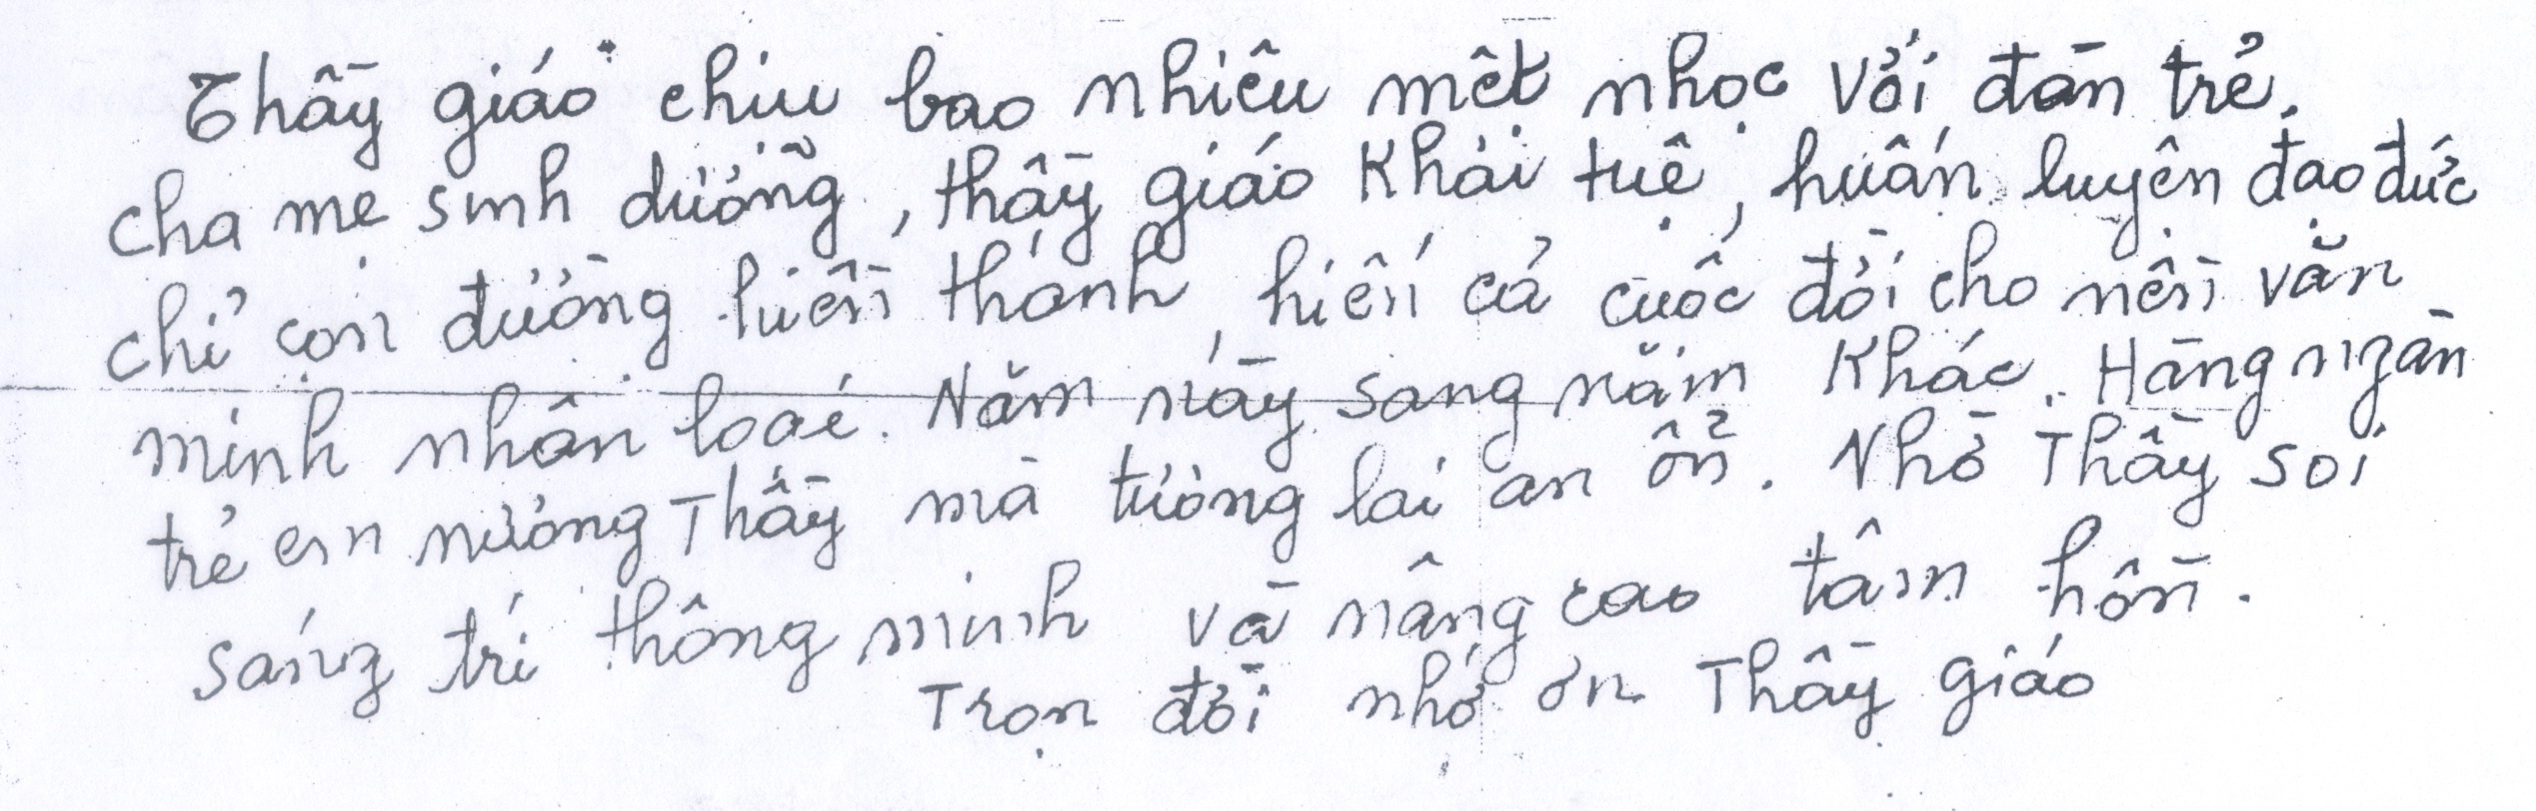 Thầy giáo chịu bao nhiêu mệt nhọc với đàn trẻ.
cha mẹ sinh dưỡng, thầy giáo khải tuệ, huấn luyện đạo đức
chỉ con đường hiền thánh, hiến cả cuộc đời cho nền văn
minh nhân loại. Năm này sang năm khác. Hàng ngàn
trẻ em nương Thầy mà tương lai an ổn. Nhờ Thầy soi
sáng trí thông minh và nâng cao tâm hồn.
Trọn đời nhớ ơn Thầy giáo